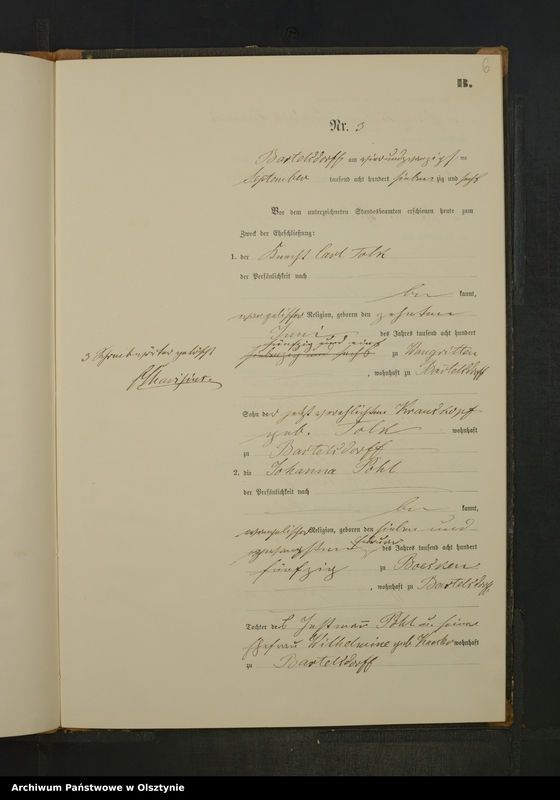 6
B.
Nr. 3
Bartelsdorff am vierundzwanzigsten
September tausend acht hundert siebenzig und sechs
Vor dem unterzeichneten Standesbeamten erschienen heute zum
Zweck der Eheschließung:
1. der Knecht Carl Tolk
der Persönlichkeit nach
be kannt,
evangelischer Religion, geboren den zehnten
Juni des Jahres tausend acht hundert
fünfzig und eins
siebenzig und sechs zu
, wohnhaft zu Bartelsdorff
3 Schreibwörter gelöscht
Sohn der jetzt verehelichten Krauskopf
geb. Tolk wohnhaft
zu Bartelsdorff
2. die Johanna Pohl
der Persönlichkeit nach
be kannt,
evangelischer Religion, geboren den sieben und
zwanzigsten Februar des Jahres tausend acht hundert
fünfzig zu
, wohnhaft zu Bartelsdorff
Tochter des Instmann Pohl u. seiner
Ehefrau Wilhelmine geb. wohnhaft
zu Bartelsdorff
Archiwum Państwowe w Olsztynie